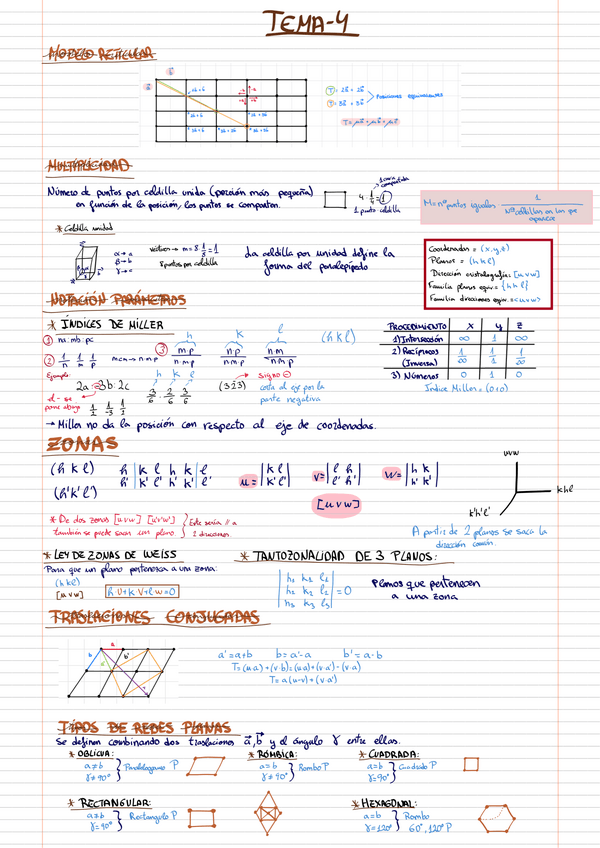 TEMA-4
MODELO RETICULAR
MULTIPLICIDAD
Número de puntos por celdilla unida (porción más pequeña)
en función de la posición, los puntos se comparten.
1 punto celdilla
M = nº puntos iguales · 1 / Nº celdillas en las que aparece
* Celdilla unidad
8 puntos por celdilla
La celdilla por unidad define la
forma del paralepípedo
Coordenadas = (x,y,z)
Planos = (h k l)
Dirección cristalográfica: [u v w]
Familia planos equiv = {h k l}
Familia direcciones equiv. = <u v w>
NOTACIÓN PARÁMETROS
* ÍNDICES DE MILLER
① na: mb: pc
② 1/n 1/m 1/p m·c·m → n·m·p
③ h k l
m·p / n·m·p n·p / n·m·p n·m / n·m·p (h k l)
Ejemplo
2a -3b: 2c
1/2 1/-3 1/2
h k l
3/6 · 2/6 3/6
(3 2̄ 3)
signo ⊖
corta al eje por la
parte negativa
PROCEDIMIENTO X Y Z
1) Intersección ∞ 1 ∞
2) Recíprocos 1/∞ 1/1 1/∞
(Inversa)
3) Números 0 1 0
Índice Miller = (010)
→ Miller no da la posición con respecto al eje de coordenadas.
ZONAS
(h k l) h | k l h k | l
(h'k'l') h' | k' l' h' k' | l'
u = | k l | v = | l h | w = | h k |
| k' l' | | l' h' | | h' k' |
[u v w]
uvw
khl
k'h'l'
* De dos zonas [u v w] [u v w']
también se puede sacar un plano
Este sería // a
2 direcciones.
A partir de 2 planos se saca la
dirección común.
* LEY DE ZONAS DE WEISS
Para que un plano pertenezca a una zona:
(h k l)
[u v w] h·U+k·V+l·w=0
* TANTOZONALIDAD DE 3 PLANOS:
| h₁ k₁ l₁ |
| h₂ k₂ l₂ | = 0
| h₃ k₃ l₃ |
Planos que pertenecen
a una zona
TRASLACIONES CONJUGADAS
a' = a+b b = a'-a b' = a-b
T = (u·a)+(v·b) = (u·a)+(v·a')-(v·a)
T = a(u-v)+(v·a')
TIPOS DE REDES PLANAS
Se definen combinando dos traslaciones a⃗, b⃗ y el ángulo γ entre ellas.
* OBLICUA:
a≠b
γ≠90° } Paralelogramo P
* RÓMBICA:
a=b
γ≠90° } Rombo P
* CUADRADA:
a=b
γ=90° } Cuadrado P
* RECTANGULAR:
a≠b
γ=90° } Rectangulo P
* HEXAGONAL:
a=b
γ=120° } Rombo
60°, 120° P